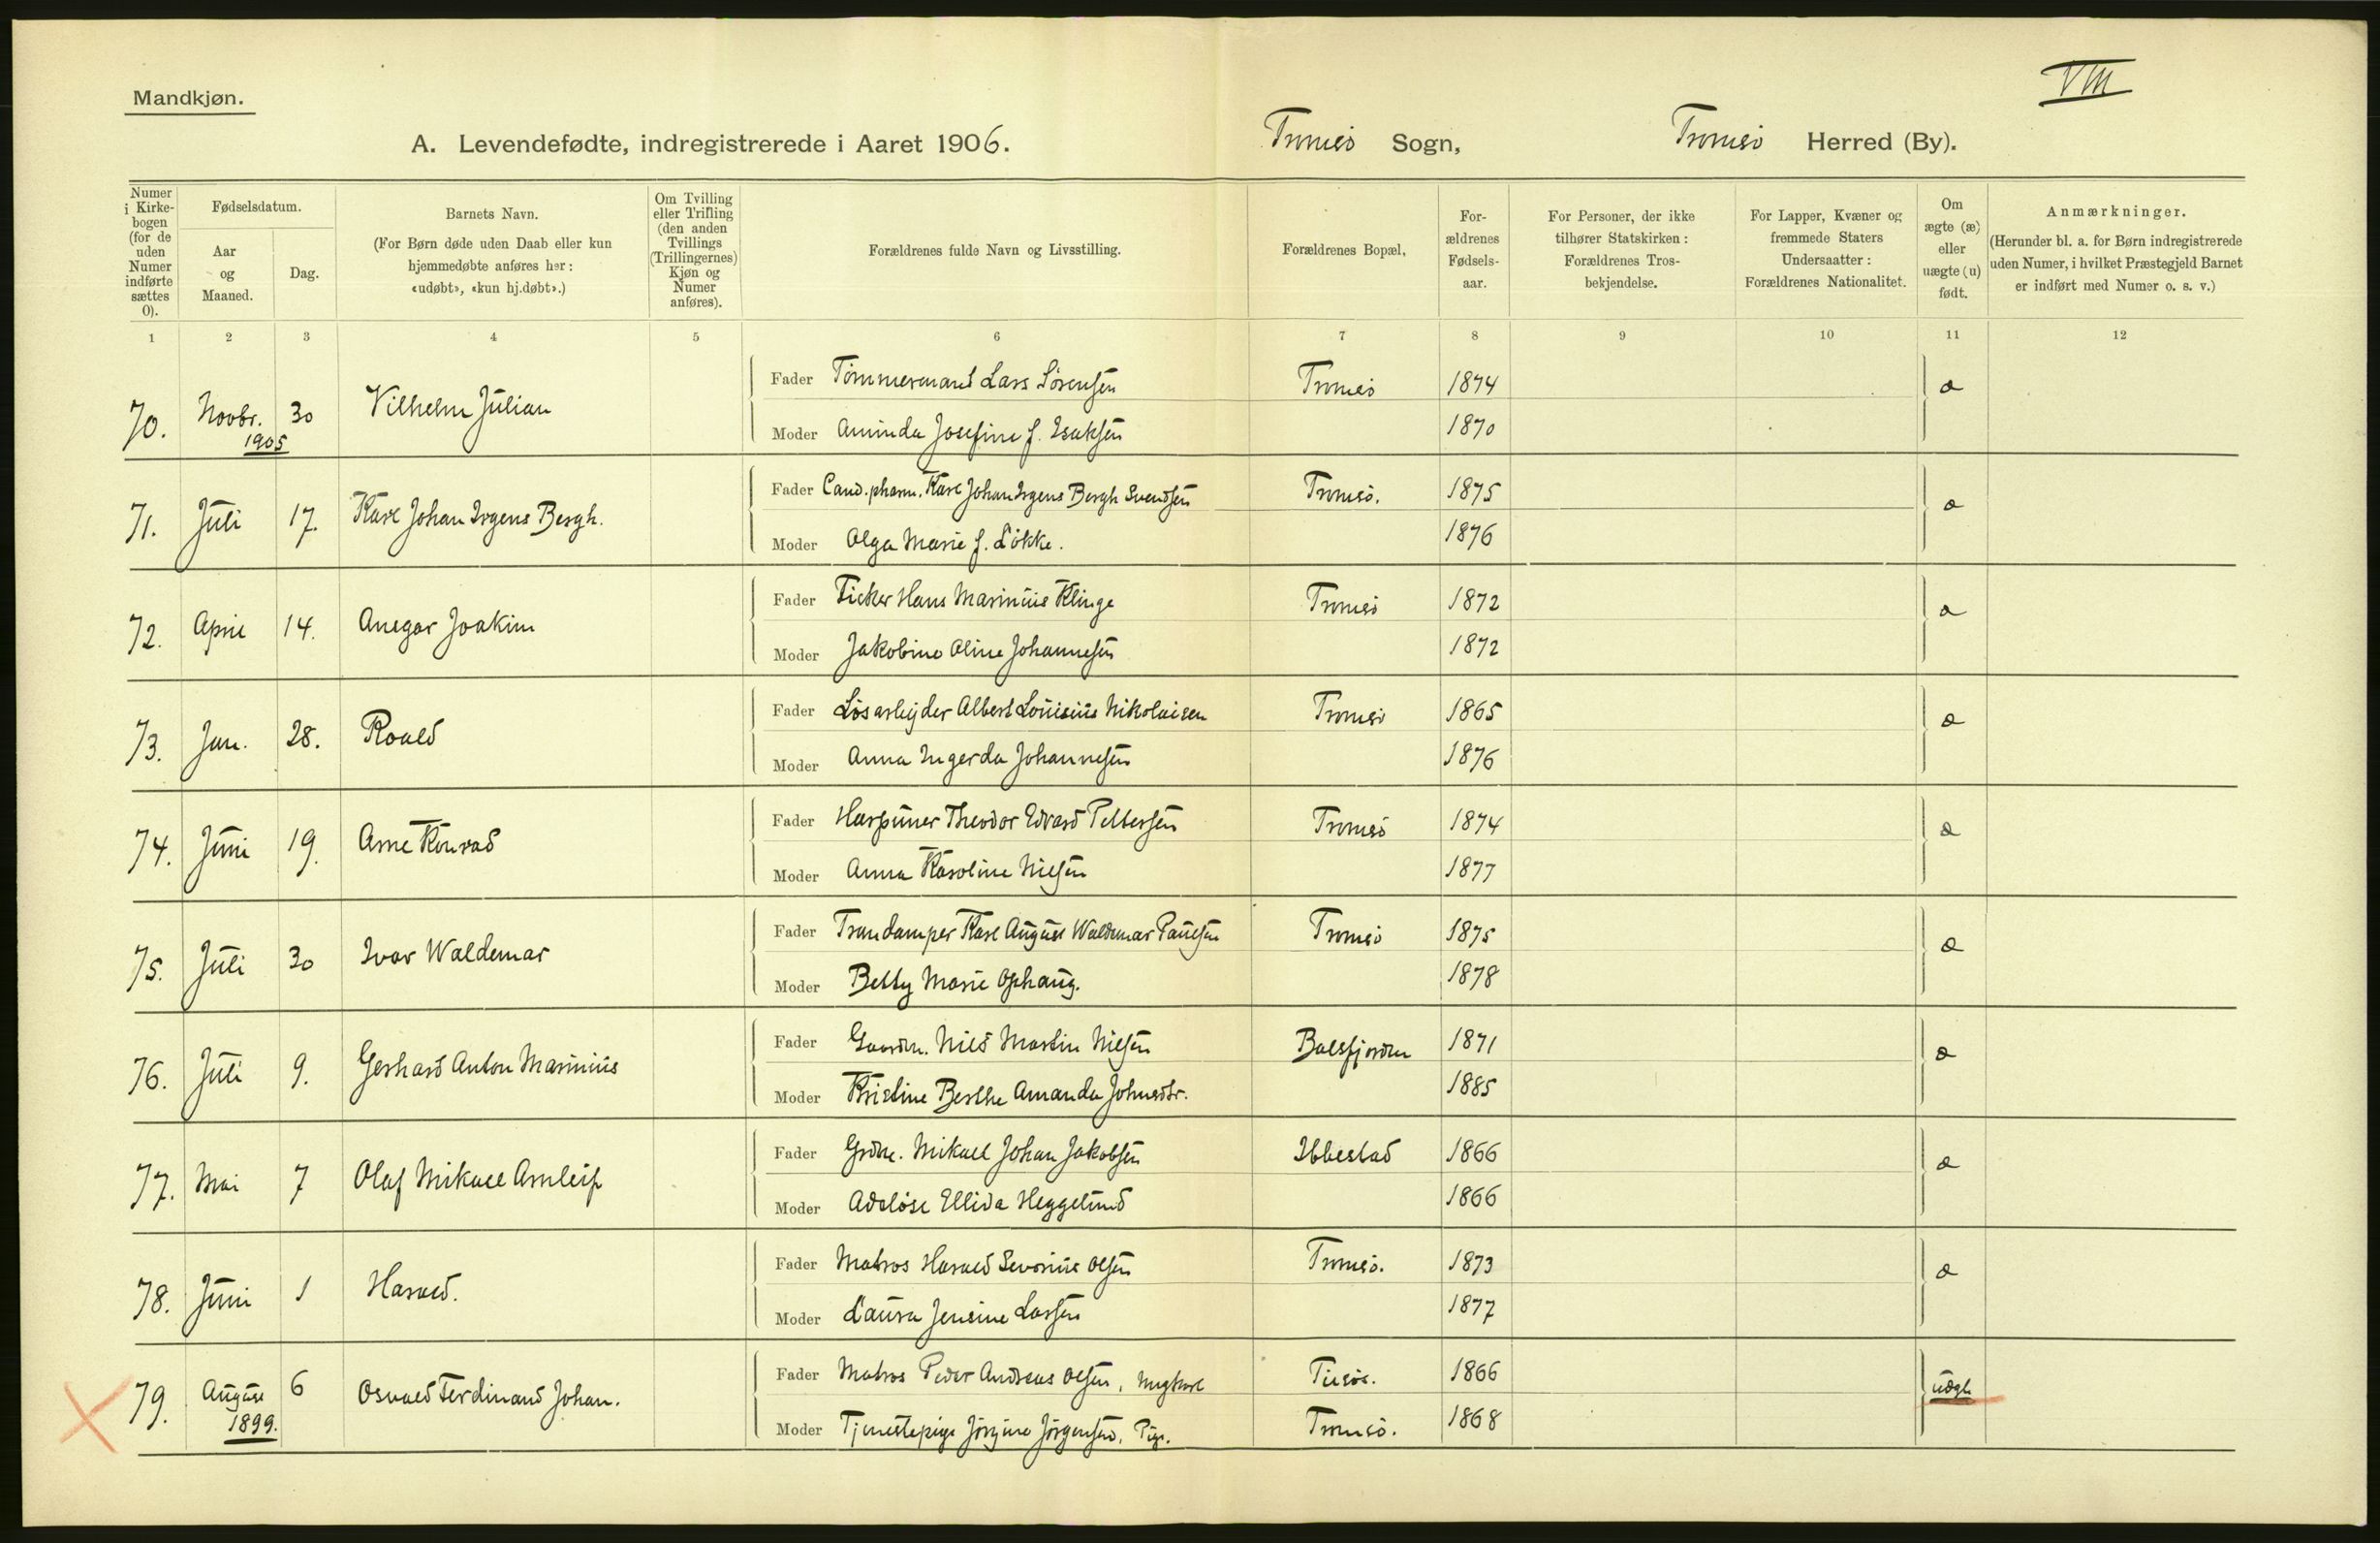 VIII
Mandkjøn.
A. Levendefødte, indregistrerede i Aaret 1906. Tromsø Sogn, Tromsø Herred (By).
Numer i Kirkebogen (for de uden Numer indførte sættes 0).
Fødselsdatum.
Aar og Maaned.
Dag.
Barnets Navn.
(For Børn døde uden Daab eller kun hjemmedøbte anføres her: «udøbt», «kun hj.døbt».)
Om Tvilling eller Trilling (den anden Tvillings (Trillingernes) Kjøn og Numer anføres).
Forældrenes fulde Navn og Livsstilling.
Forældrenes Bopæl,
For-ældrenes Fødsels-aar.
For Personer, der ikke tilhører Statskirken: Forældrenes Tros-bekjendelse.
For Lapper, Kvæner og fremmede Staters Undersaatter: Forældrenes Nationalitet.
Om ægte (æ) eller uægte (u) født.
Anmærkninger.
(Herunder bl. a. for Børn indregistrerede uden Numer, i hvilket Præstegjeld Barnet er indført med Numer o. s. v.)
1 2 3 4 5 6 7 8 9 10 11 12
70. Novbr. 1905 30 Vilhelm Julian Fader Tømmermand Lars Sørensen Tromsø 1874 æ
Moder Aminda Josefine f. Isaksen 1870
71. Juli 17. Karl Johan Irgens Bergh. Fader Cand. pharm. Karl Johan Irgens Bergh Svendsen Tromsø. 1875 æ
Moder Olga Marie f. Løkke. 1876
72. April 14. Ansgar Joakim Fader Fisker Hans Marinius Klinge Tromsø 1872 æ
Moder Jakobine Oline Johannesen 1872
73. Jan. 28. Roald Fader Løsarbejder Albert Louisius Nikolaisen Tromsø 1865 æ
Moder Anna Ingerda Johannesen 1876
74. Juni 19. Arne Konrad Fader Harpuner Theodor Edvard Pettersen Tromsø 1874 æ
Moder Anna Karoline Nilsen 1877
75. Juli 30 Ivar Waldemar Fader Trandamper Karl August Waldemar Paulsen Tromsø 1875 æ
Moder Betty Marie Ophaug. 1878
76. Juli 9. Gerhard Anton Marinius Fader Gaardm. Nils Martin Nilsen Balsfjorden 1871 æ
Moder Kristine Berthe Amanda Johnsdtr. 1885
77. Mai 7 Olaf Mikael Arnleif Fader Grdm. Mikael Johan Jakobsen Ibbestad 1866 æ
Moder Adeløse Ellida Heggelund 1866
78. Juni 1 Harald. Fader Matros Harald Severius Olsen Tromsø. 1873 æ
Moder Laura Jensine Larsen 1877
79. August 1899. 6 Osvald Ferdinand Johan. Fader Matros Peder Andreas Olsen, Ungkarl 1866 uægt.
Moder Tjenestepige Jørgine Jørgensen, Pige. Tromsø. 1868